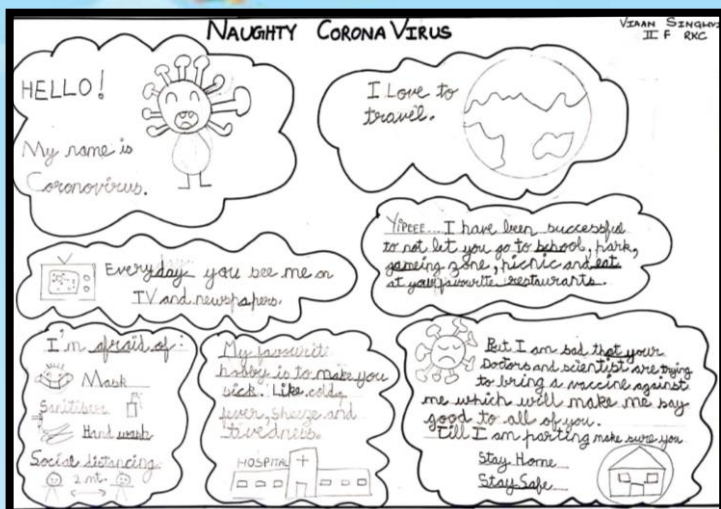 NAUGHTY CORONA VIRUS
VIAAN SINGHVI
II F RKC
HELLO!
My name is
Coronovirus.
I Love to
travel.
Yipeee... I have been successful
to not let you go to school, park,
gameing zone, picnic and eat
at your favourite restaurants.
Everyday you see me on
TV and newspapers.
I'm afraid of:
Mask
Sanitiser
Hand wash
Social distancing
2 mt.
My favourite
hobby is to make you
sick. Like cold,
fever, sneeze and
tiredness.
HOSPITAL
But I am sad that your
Doctors and scientist are trying
to bring a vaccine against
me which will make me say
good to all of you.
Till I am parting make sure you
Stay Home
Stay Safe